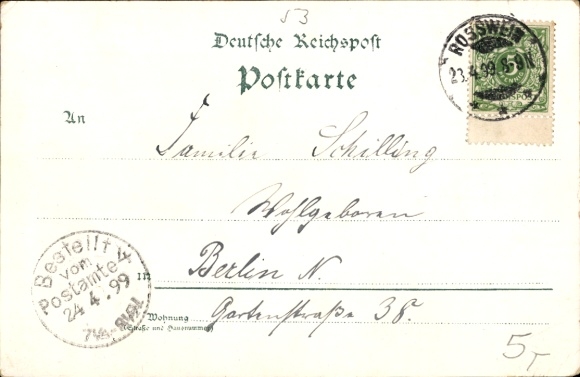 53
Deutsche Reichspost
Postkarte
ROSSWEIN
23.4.99.8-9N
An
Familie Schilling
Wohlgeboren
in
Berlin N.
Wohnung
(Straße und Hausnummer)
Gartenstraße 38.
Bestellt
vom
Postamte 4
24.4.99
7¼-8¼V
5